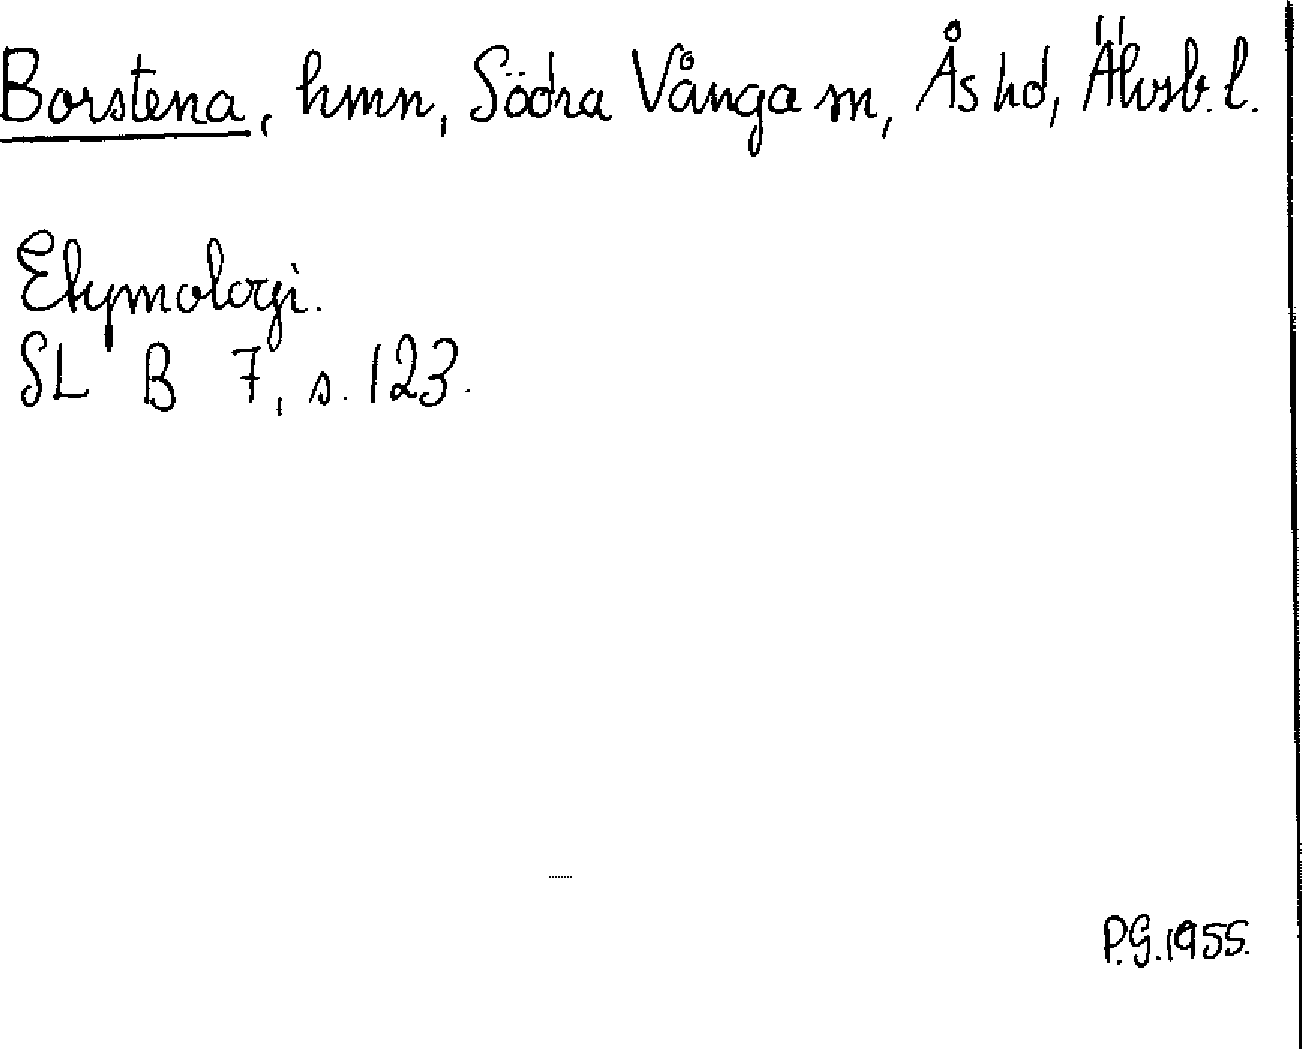 Borstena, hmn, Södra Vånga sn, Ås hd, Älvsb. l.
Etymologi.
SL B 7, s. 123.
P.G. 1955.